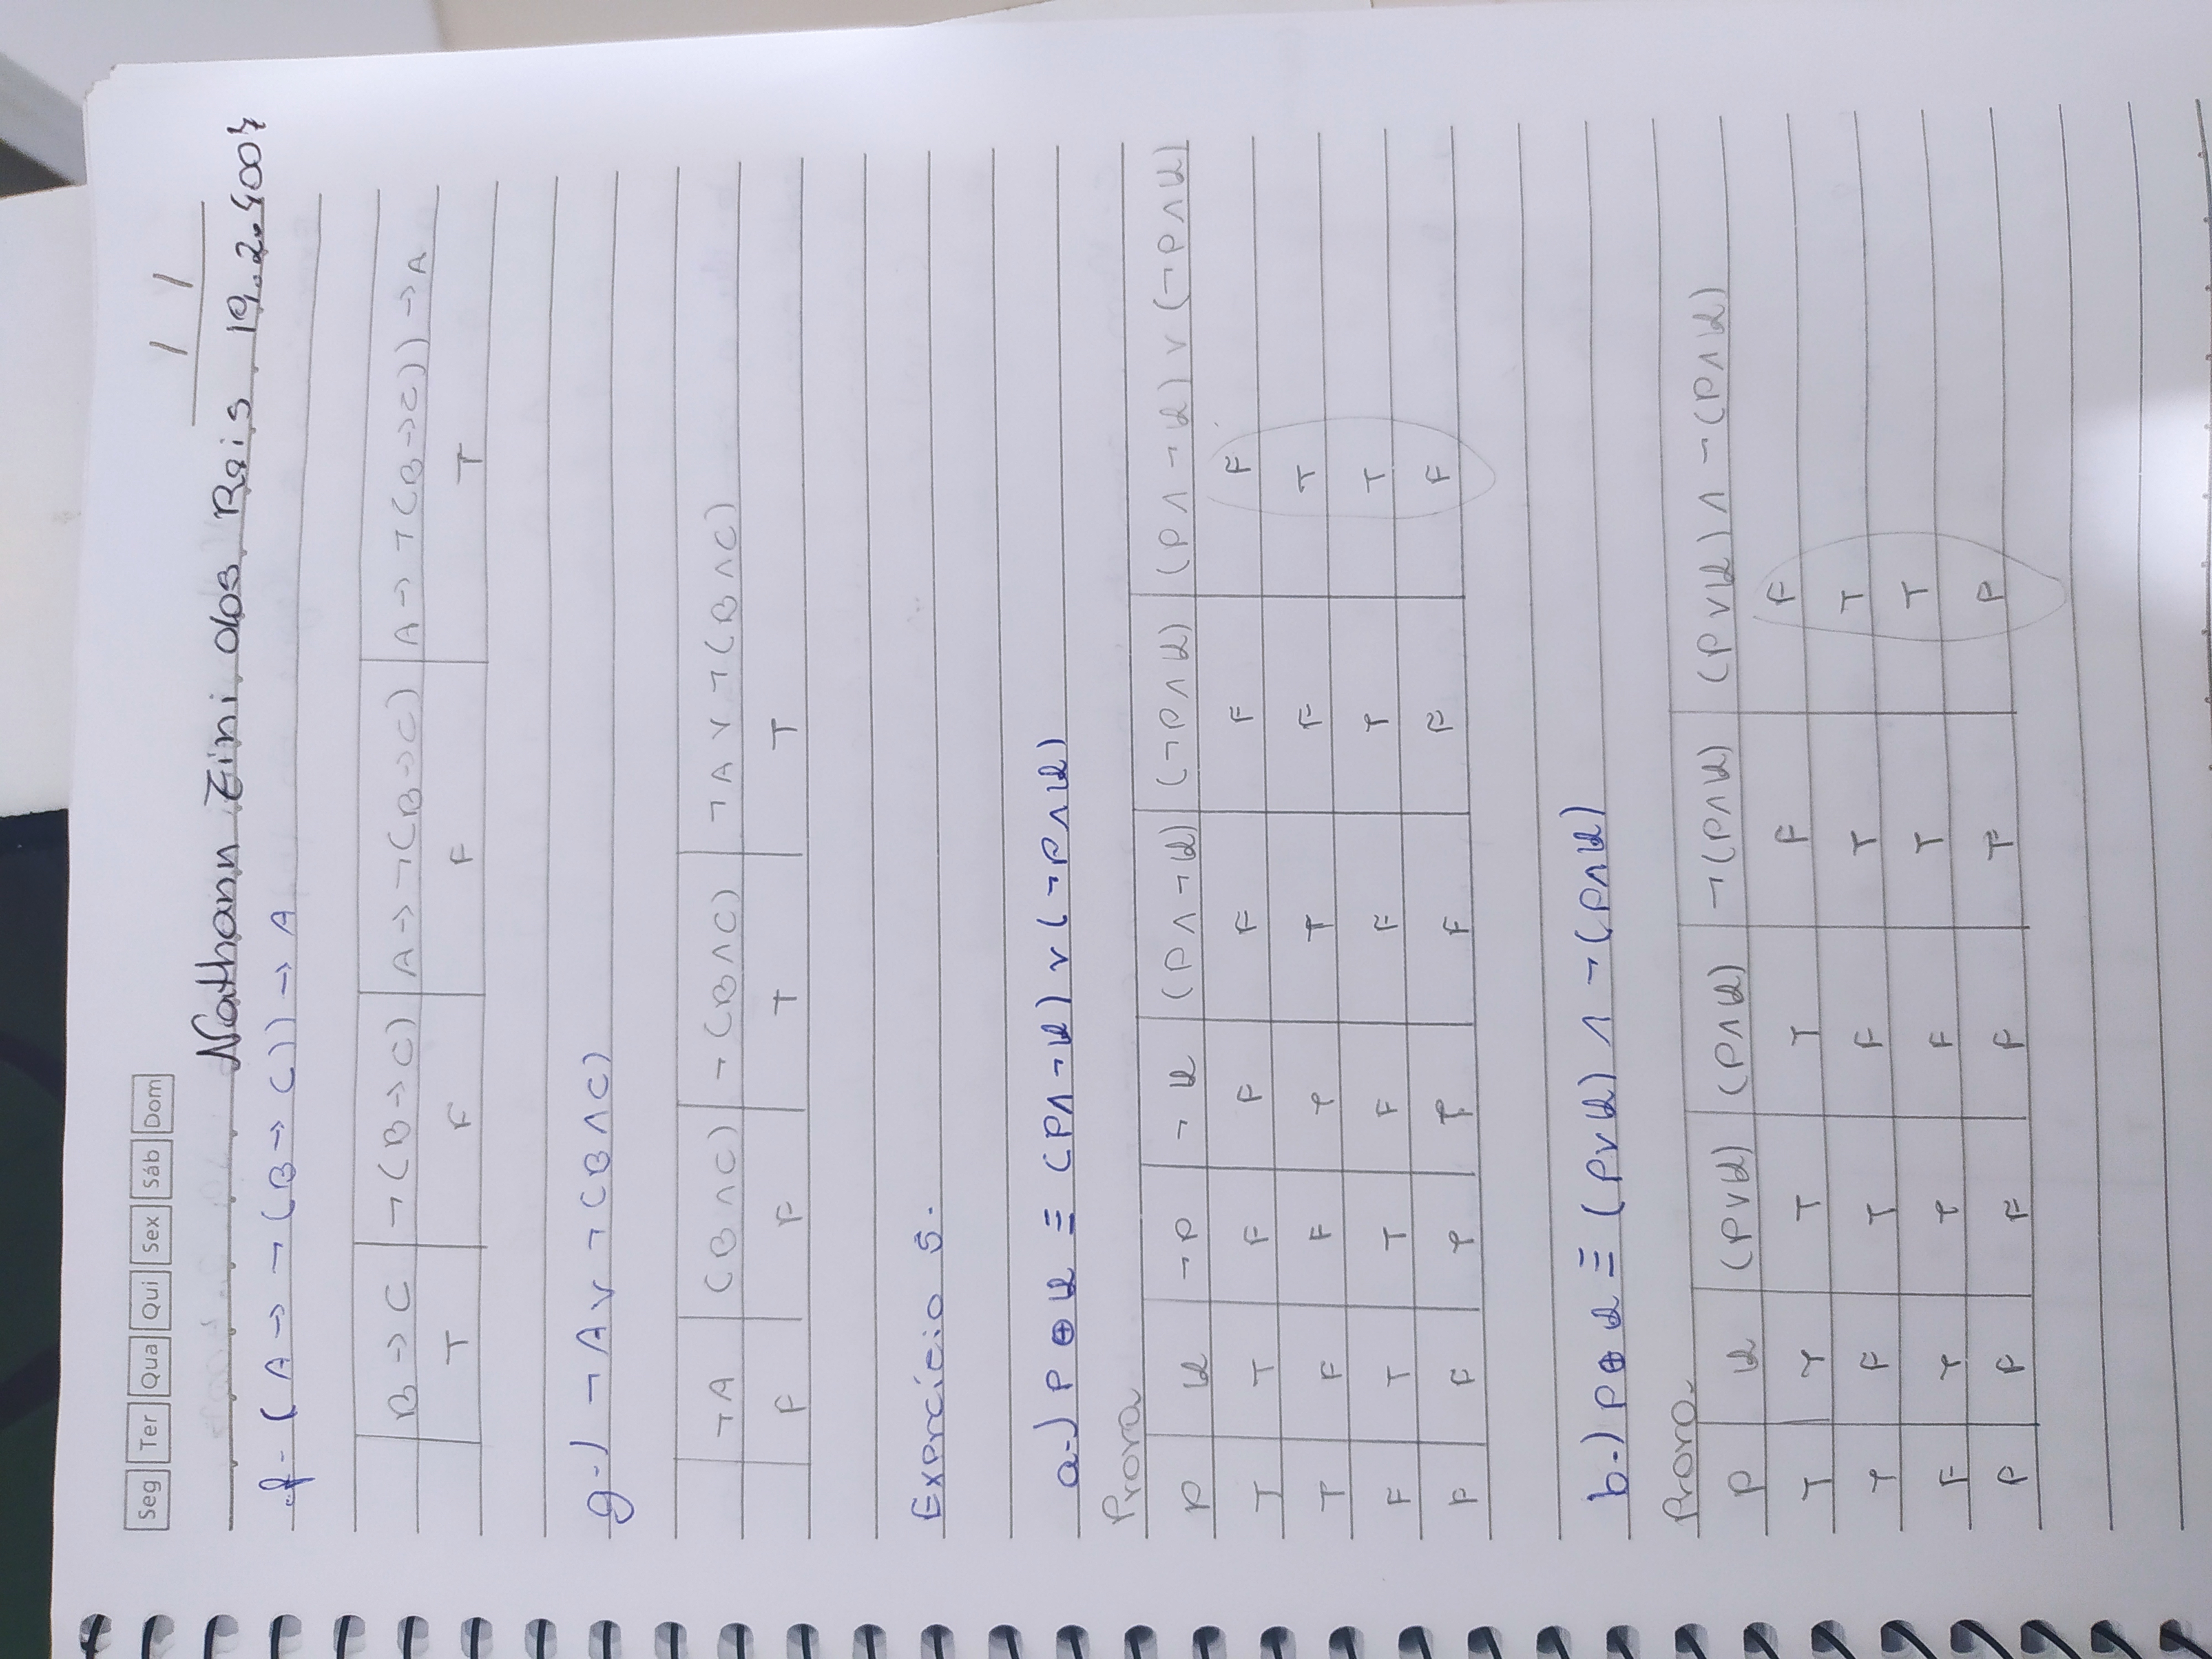 Seg Ter Qua Qui Sex Sáb Dom
/ /
Nathann Zini dos Reis 19.2.4007
f- (A → ¬(B → C)) → A
B → C ¬(B → C) A → ¬(B → C) A → ¬(B → C)) → A
T F F T
g-) ¬A ∨ ¬(B ∧ C)
¬A (B ∧ C) ¬(B ∧ C) ¬A ∨ ¬(B ∧ C)
F F T T
Exercício 5.
a-) P ⊕ Q ≡ (P ∧ ¬Q) ∨ (¬P ∧ Q)
Prova
P Q ¬P ¬Q (P ∧ ¬Q) (¬P ∧ Q) (P ∧ ¬Q) ∨ (¬P ∧ Q)
T T F F F F F
T F F T T F T
F T T F F T T
F F T T F F F
b-) P ⊕ Q ≡ (P ∨ Q) ∧ ¬(P ∧ Q)
Prova
P Q (P ∨ Q) (P ∧ Q) ¬(P ∧ Q) (P ∨ Q) ∧ ¬(P ∧ Q)
T T T T F F
T F T F T T
F T T F T T
F F F F T F